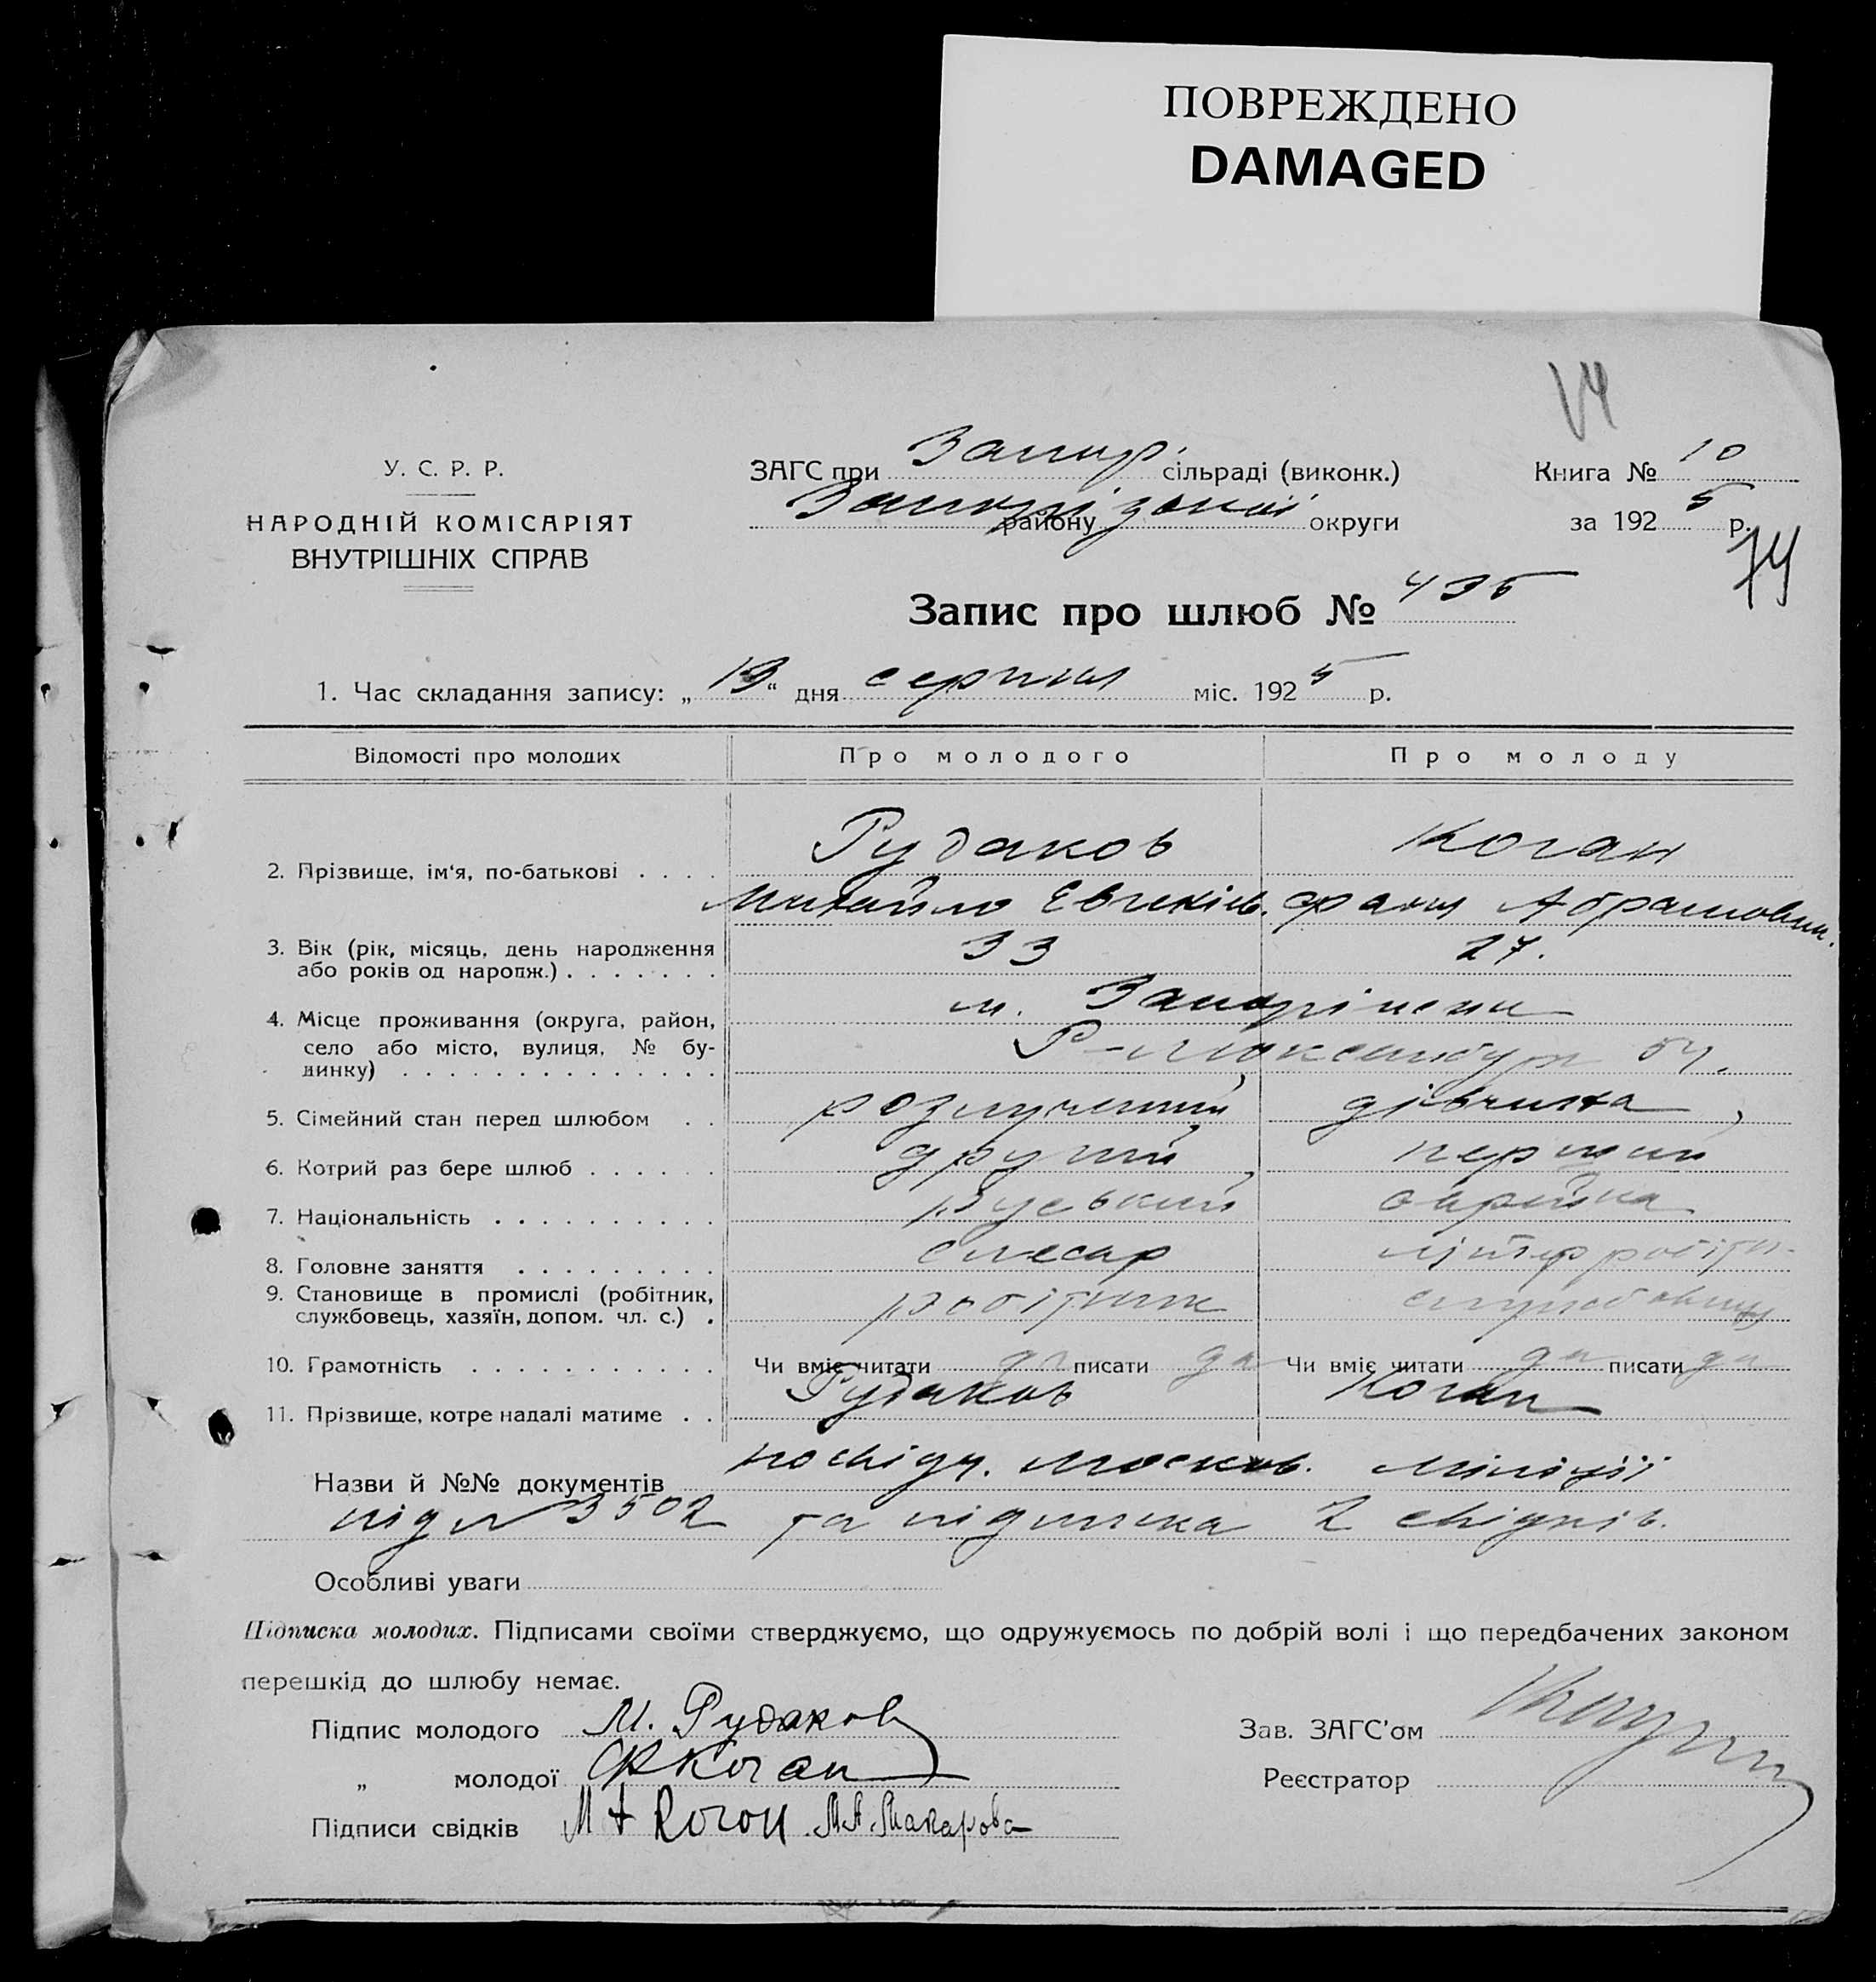 ПОВРЕЖДЕНО
DAMAGED
У. С. Р. Р.
НАРОДНІЙ КОМІСАРІЯТ
ВНУТРІШНІХ СПРАВ
ЗАГС при Запор. сільраді (виконк.)
району округи
Книга № 10
за 192 5 р.
74
Запис про шлюб № 435
1. Час складання запису: „ 13 “ дня серпня міс. 192 5 р.
Відомості про молодих Про молодого Про молоду
2. Прізвище, ім'я, по-батькові . . . . Рудаков Коган
Михайло Абрамовн.
3. Вік (рік, місяць, день народження
або років од народж.) . . . . . . . 33 27.
4. Місце проживання (округа, район,
село або місто, вулиця, № бу-
динку) . . . . . . . . . . . . . . м.
5. Сімейний стан перед шлюбом . . розлучений дівчина
6. Котрий раз бере шлюб . . . . . . другий перший
7. Національність . . . . . . . . . . руський
8. Головне заняття . . . . . . . . . слесар
9. Становище в промислі (робітник,
службовець, хазяїн, допом. чл. с.) . робітник службовець
10. Грамотність . . . . . . . . . . . Чи вміє читати да писати да Чи вміє читати да писати да
11. Прізвище, котре надалі матиме . . Рудаков Коган
Назви й №№ документів посвідч. Москов. міліції
під № 3502 та підписка 2 свідків.
Особливі уваги
Підписка молодих. Підписами своїми стверджуємо, що одружуємось по добрій волі і що передбачених законом
перешкід до шлюбу немає.
Підпис молодого М. Рудаков
„ молодої ФКоган
Підписи свідків М А Коган М.А. Макарова
Зав. ЗАГС'ом
Реєстратор